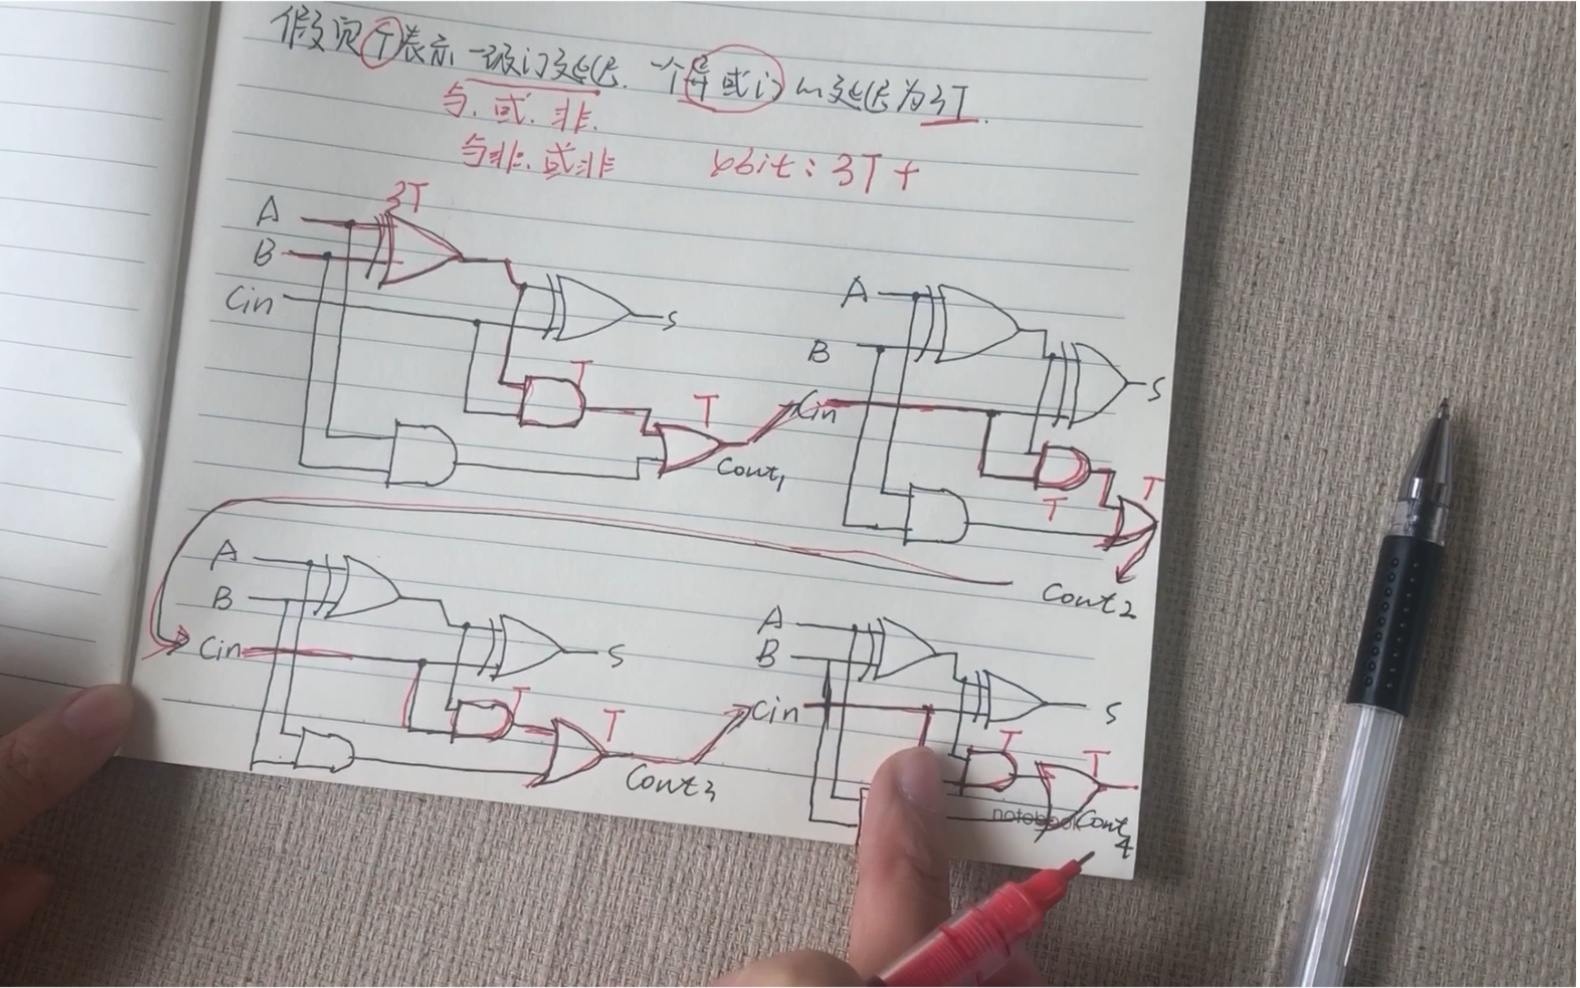 假定T表示一级门延迟.一个异或门的延迟为3T.
与.或.非.
与非.或非 6bit:3T+
3T
A
B
Cin
S
T
T
Cout1
A
B
Cin
S
T
T
Cout2
A
B
Cin
S
T
T
Cout3
A
B
Cin
S
T
T
notebook
Cout4